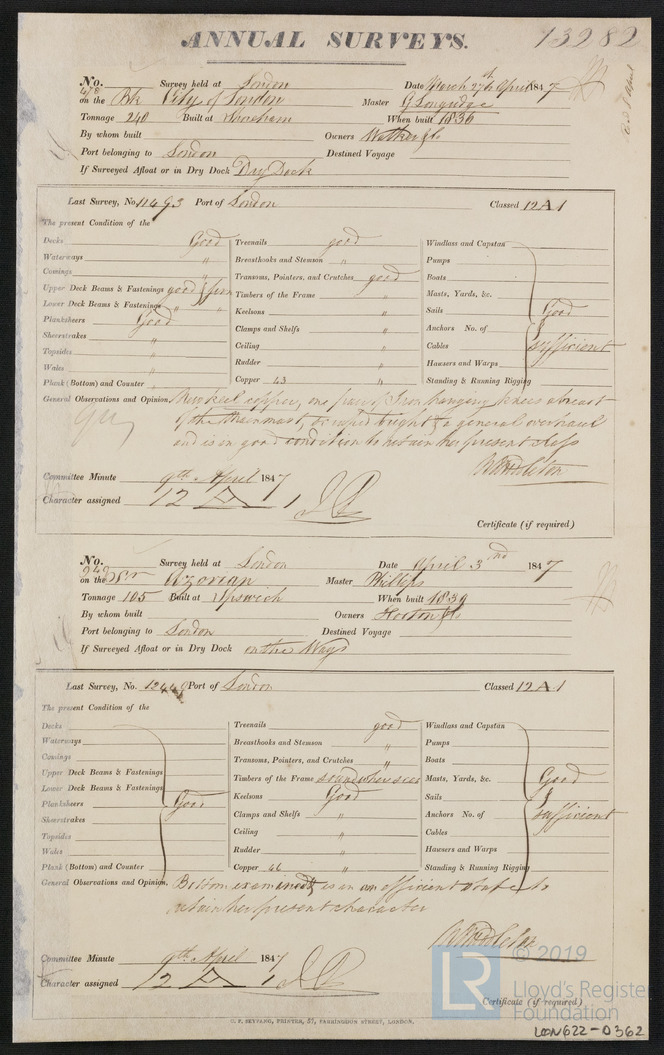 ANNUAL SURVEYS. 13282
No. 478 Survey held at London Date March 27th April 1847
on the Bk City of London Master G Longridge
Tonnage 240 Built at Shoreham When built 1836
By whom built Owners Walker & Co
Port belonging to London Destined Voyage
If Surveyed Afloat or in Dry Dock Dry Dock
Last Survey, No. 11493 Port of London Classed 12 A 1
The present Condition of the
Decks Good Treenails good Windlass and Capstan
Waterways " Breasthooks and Stemson " Pumps
Comings " Transoms, Pointers, and Crutches good Boats
Upper Deck Beams & Fastenings good Timbers of the Frame " Masts, Yards, &c.
Lower Deck Beams & Fastenings " " Keelsons " Sails Good
Planksheers Good Clamps and Shelfs " Anchors No. of &
Sheerstrakes " Ceiling " Cables sufficient
Topsides " Rudder " Hawsers and Warps
Wales " Copper 43 " Standing & Running Rigging
Plank (Bottom) and Counter "
General Observations and Opinion, New keel copper, one pair of Iron hanging knees abreast
of the Mainmast, scraped bright & a general overhaul
and is in good condition to retain her present class
Committee Minute 9th April 1847
Character assigned 12 A 1
Certificate (if required)
No. 242 Survey held at London Date April 3rd 1847
on the Sr Azorian Master Phillips
Tonnage 105 Built at Ipswich When built 1839
By whom built Owners Horton & Co
Port belonging to London Destined Voyage
If Surveyed Afloat or in Dry Dock on the Ways
Last Survey, No. 12449 Port of London Classed 12 A 1
The present Condition of the
Decks Treenails good Windlass and Capstan
Waterways Breasthooks and Stemson " Pumps
Comings Transoms, Pointers, and Crutches " Boats
Upper Deck Beams & Fastenings Timbers of the Frame sound where seen Masts, Yards, &c. Good
Lower Deck Beams & Fastenings Keelsons Good Sails &
Planksheers Good Clamps and Shelfs " Anchors No. of sufficient
Sheerstrakes Ceiling " Cables
Topsides Rudder " Hawsers and Warps
Wales Copper 46 " Standing & Running Rigging
Plank (Bottom) and Counter
General Observations and Opinion, Bottom examined is in an efficient state to
retain her present character
Committee Minute 9th April 1847
Character assigned 12 A 1
Certificate (if required)
C. F. SEYFANG, PRINTER, 57, FARRINGDON STREET, LONDON.
© 2019
LR
Lloyd's Register
Foundation
LON622-0362